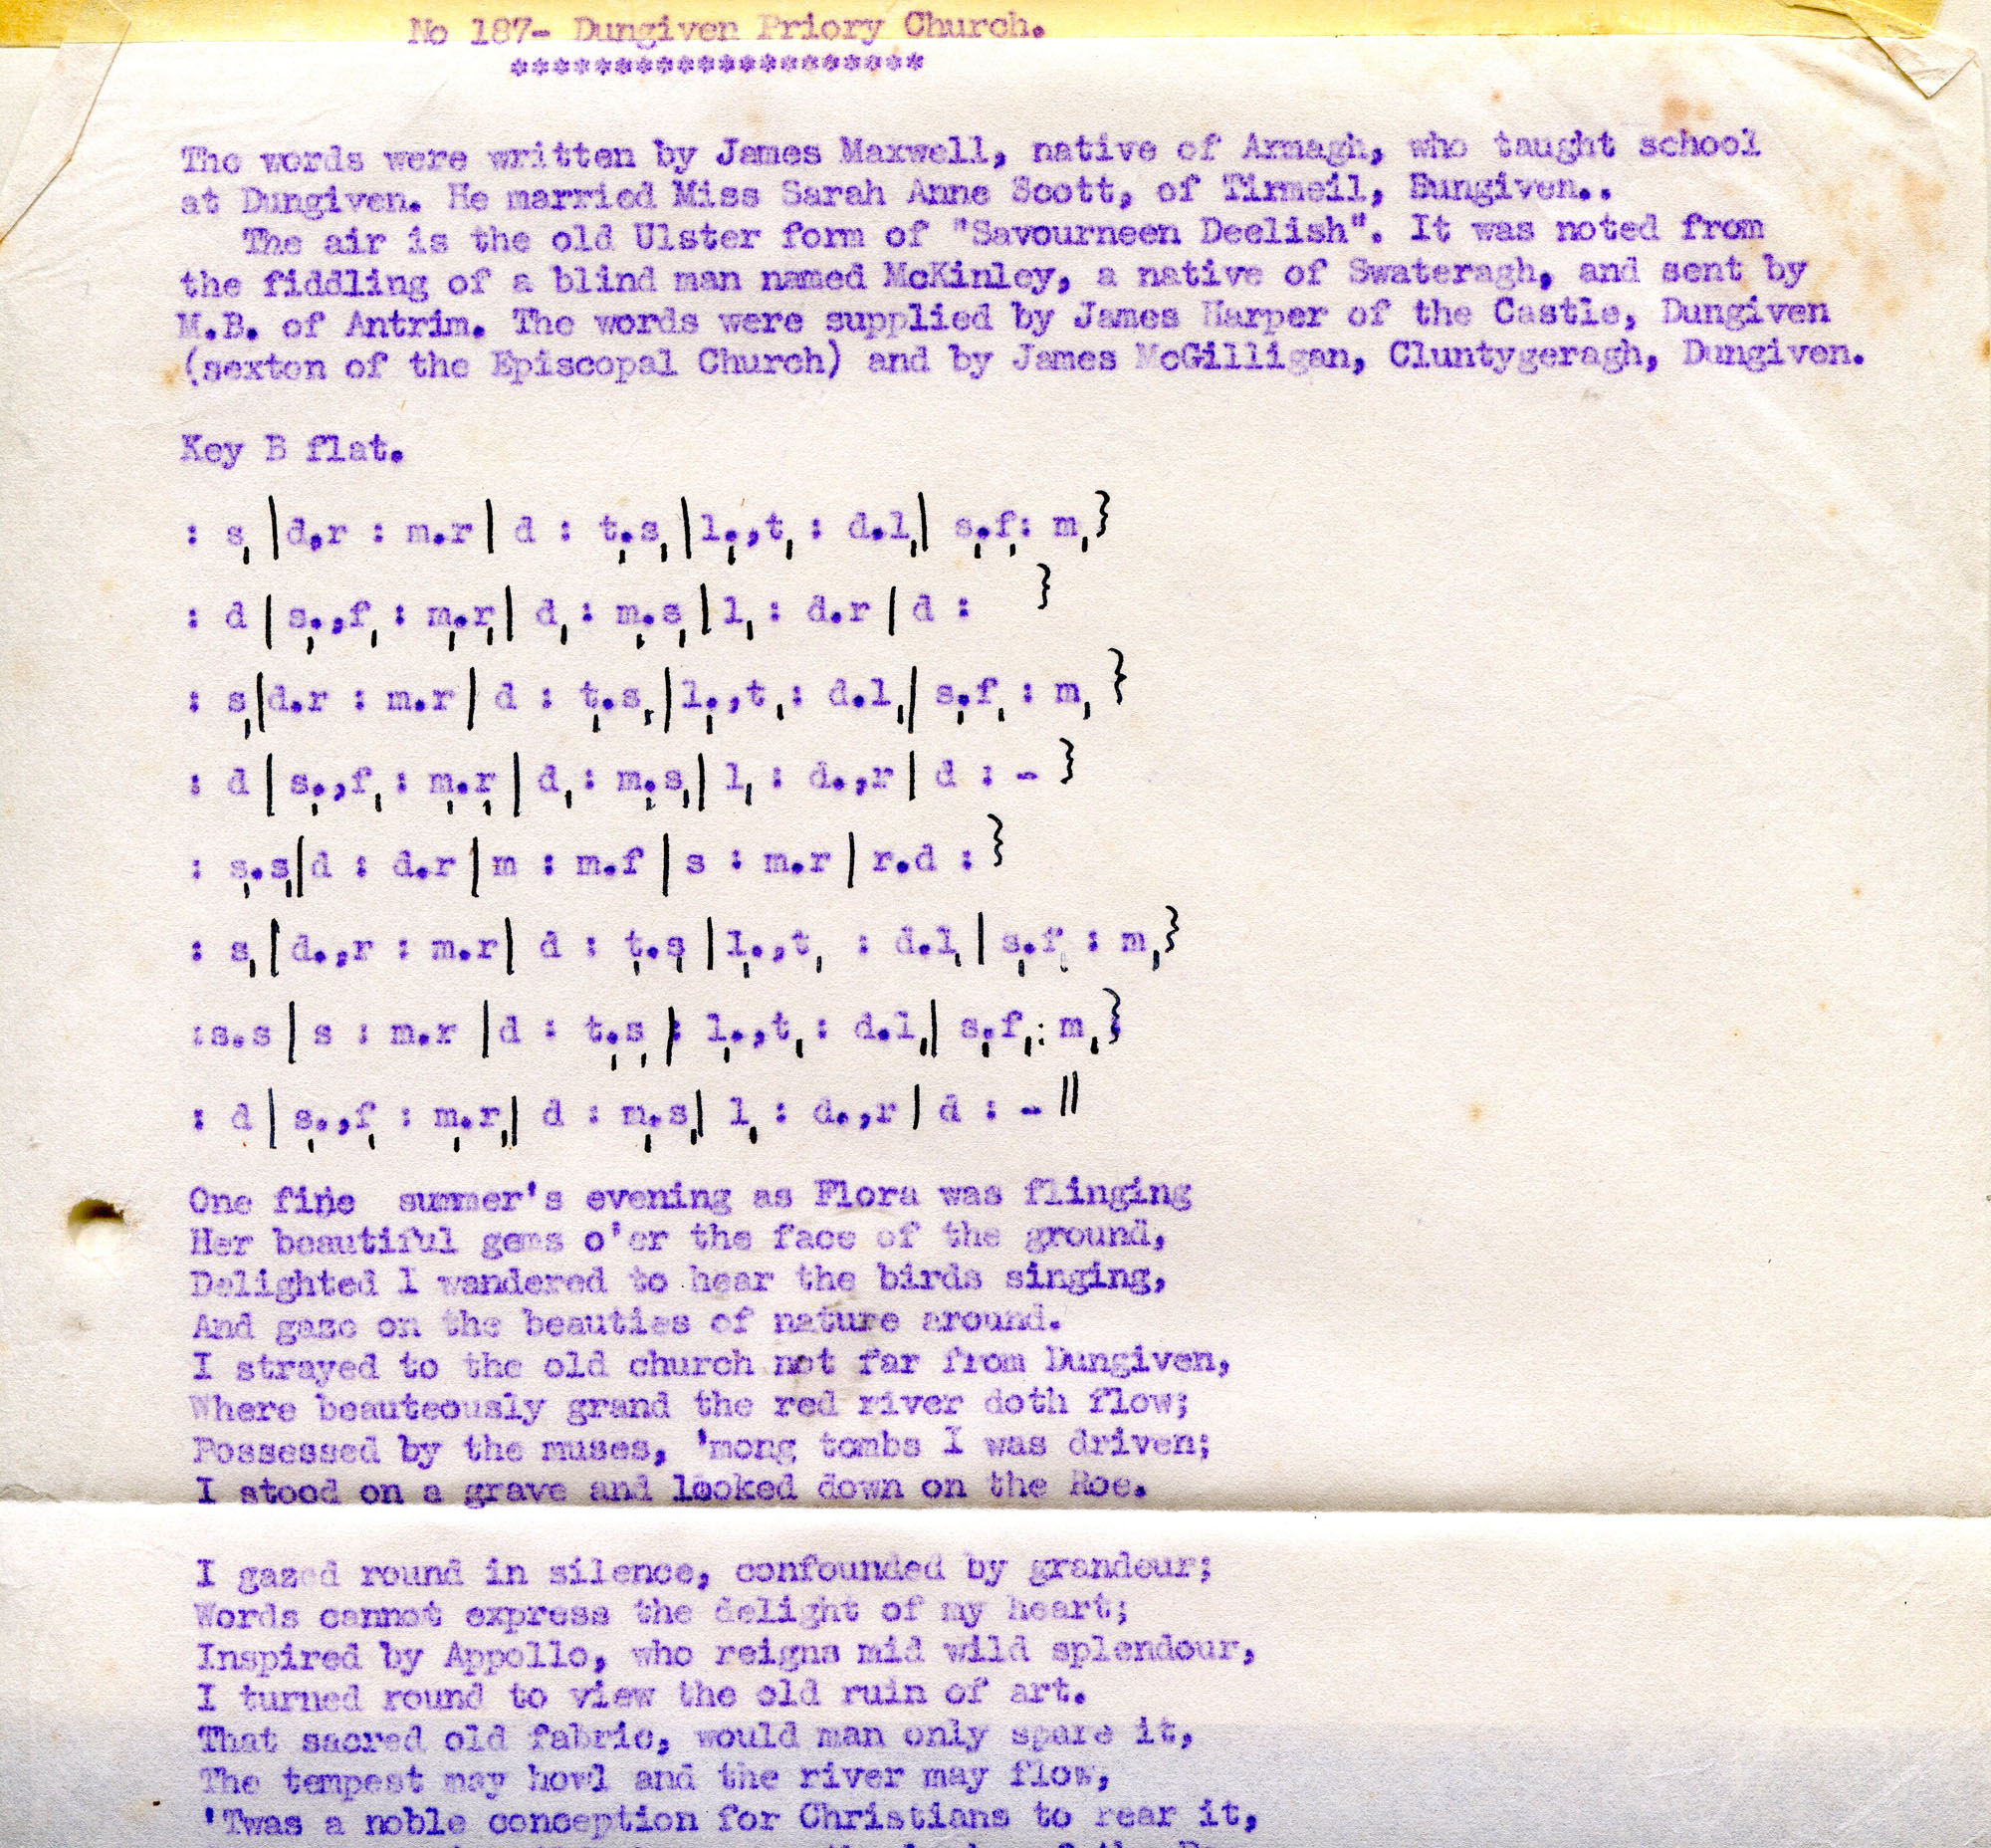 No 187- Dungiven Priory Church.
********************
The words were written by James Maxwell, native of Armagh, who taught school
at Dungiven. He married Miss Sarah Anne Scott, of Tirmeil, Bungiven..
The air is the old Ulster form of "Savourneen Deelish". It was noted from
the fiddling of a blind man named McKinley, a native of Swateragh, and sent by
M.B. of Antrim. The words were supplied by James Harper of the Castle, Dungiven
(sexton of the Episcopal Church) and by James McGilligan, Cluntygeragh, Dungiven.
Key B flat.
: s, | d.r : m.r | d : t,.s, | l,.,t, : d.l, | s,.f, : m, }
: d | s,.,f, : m,.r, | d, : m,.s, | l, : d.r | d : }
: s, | d.r : m.r | d : t,.s, | l,.,t, : d.l, | s,.f, : m, }
: d | s,.,f, : m,.r, | d, : m,.s, | l, : d.,r | d : - }
: s,.s, | d : d.r | m : m.f | s : m.r | r.d : }
: s, | d.,r : m.r | d : t,.s, | l,.,t, : d.l, | s,.f, : m, }
:s.s | s : m.r | d : t,.s, | l,.,t, : d.l, | s,.f, : m, }
: d | s,.,f, : m,.r, | d : m,.s, | l, : d.,r | d : - ||
One fine summer's evening as Flora was flinging
Her beautiful gems o'er the face of the ground,
Delighted I wandered to hear the birds singing,
And gaze on the beauties of nature around.
I strayed to the old church not far from Dungiven,
Where beauteously grand the red river doth flow;
Possessed by the muses, 'mong tombs I was driven;
I stood on a grave and looked down on the Roe.
I gazed round in silence, confounded by grandeur;
Words cannot express the delight of my heart;
Inspired by Appollo, who reigns mid wild splendour,
I turned round to view the old ruin of art.
That sacred old fabric, would man only spare it,
The tempest may howl and the river may flow,
'Twas a noble conception for Christians to rear it,